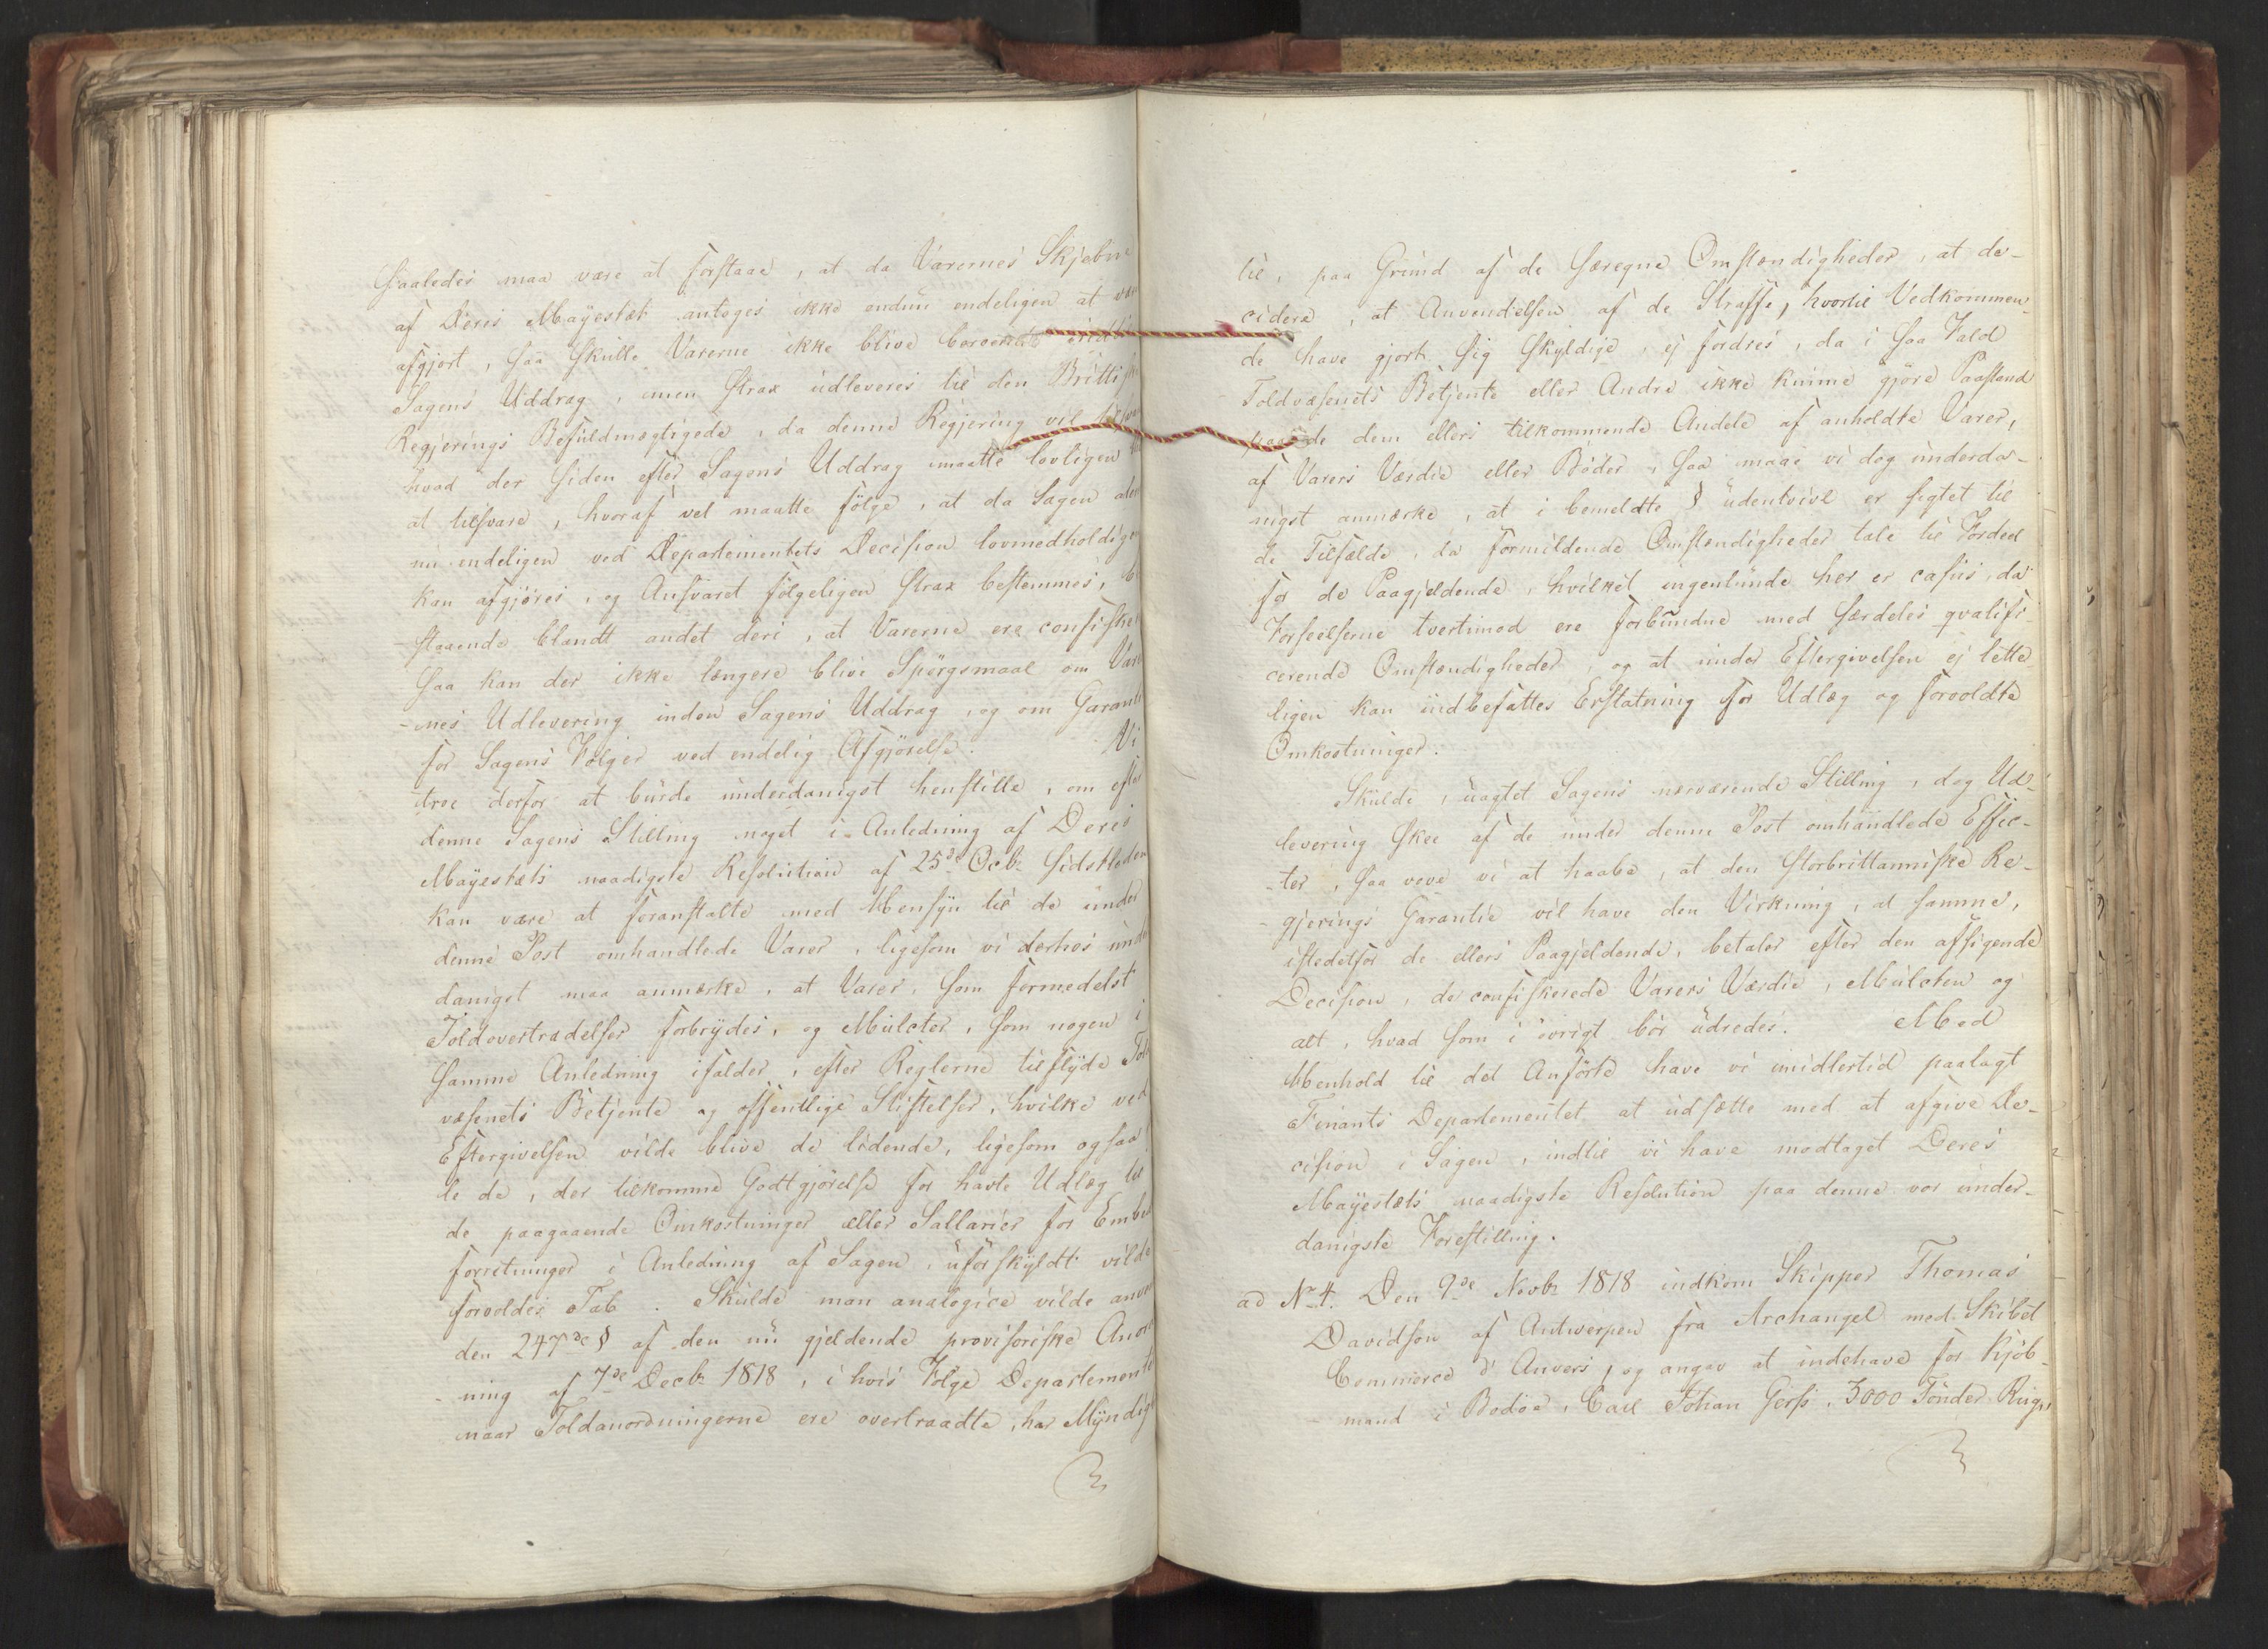 saaledes maa være at forstaae, at da Varernes Skjebne
af Deres Mayestæt antoges ikke endnu endeligen at være
afgjort, saa skulle Varerne ikke blive beroende
Sagens Uddrag, men strax udleveres til den Brittiske
Regjerings Befuldmægtigede, da denne Regjering vil
hvad der siden efter Sagens Uddrag maatte lovligen
at tilsvare, hvoraf vel maatte følge, at da Sagen
nu endeligen ved Departementets Decision lovmedholdigen
kan afgjøres, og Ansvaret følgeligen strax bestemmes, be-
staaende blandt andet deri, at Varerne ere confiskerede
saa kan der ikke længere blive Spørgsmaal om Varer-
-nes Udlevering inden Sagens Uddrag, og om Garantie
for Sagens Følger ved endelig Afgjørelse. Vi
troe derfor at burde underdanigst henstille, om efter
denne Sagens Stilling noget i Anledning af Deres
Mayestæts naadigste Resolution af 25de Octbr sidstleden
kan være at foranstalte med Hensyn til de under
denne Post omhandlede Varer, ligesom vi derhos under
danigst maa anmærke, at Varer, som formedelst
Toldovertrædelser forbrydes, og Mulcter, som nogen i
samme Anledning ifalder, efter Reglerne tilflyde Told
væsenets Betjente og offentlige Stiftelser, hvilke ved
Eftergivelsen vilde blive de lidende, ligesom ogsaa
le de, der tilkomme Godtgjørelse for havte Udlæg til
de paagaaende Omkostninger eller Sallarier for Embeds
forretninger i Anledning af Sagen, uforskyldt vilde
forvoldes Tab. Skulde man analogice vilde anvende
den 247de § af den nu gjeldende provisoriske Anord
-ning af 7de Decbr 1818, i hvis Følge Departementet
naar Toldanordningerne ere overtraadte, har Myndighed
til, paa Grund af de særegne Omstændigheder, at de-
cidere, at Anvendelsen af de Straffe, hvortil Vedkommen-
de have gjort sig skyldige, ej fordres, da i saa Fald
Toldvæsenets Betjente eller Andre ikke kunne gjøre Paastand
paa de dem ellers tilkommende Andele af anholdte Varer,
af Varers Værdie eller Bøder, saa maae vi dog underda-
nigst anmærke, at i bemeldte § udentvivl er sigtet til
de Tilfælde, da formildende Omstændigheder tale til Fordeel
for de Paagjeldende, hvilket ingenlunde her er casus, da
Forseelserne tvertimod ere forbundne med særdeles qvalifi-
cerende Omstændigheder, og at under Eftergivelsen ej lette-
ligen kan indbefattes Erstatning for Udlæg og forvoldte
Omkostninger.
Skulde, uagtet Sagens nærværende Stilling, dog Ud-
levering skee af de under denne Post omhandlede Effec-
-ter, saa vove vi at haabe, at den storbrittanniske Re-
-gjerings Garantie vil have den Virkning, at samme,
istedetfor de ellers Paagjeldende, betaler efter den affigende
Decision, de confiskerede Varers Værdie, Mulcten og
alt, hvad som i øvrigt bør udredes. Med
Henhold til det Anførte have vi imidlertid paalagt
Finants Departementet at udsætte med at afgive De-
cision i Sagen, indtil vi have modtaget Deres
Mayestæts naadigste Resolution paa denne vor under-
danigste Forestilling.
ad No 4. Den 9de Novbr 1818 indkom Skipper Thomas
Davidson af Antwerpen fra Archangel med Skibet
Commerce d'Anvers, og angav at indehave for Kjøb-
-mand i Bodøe, Carl Johan Gerss, 3000 Tønder Rug,